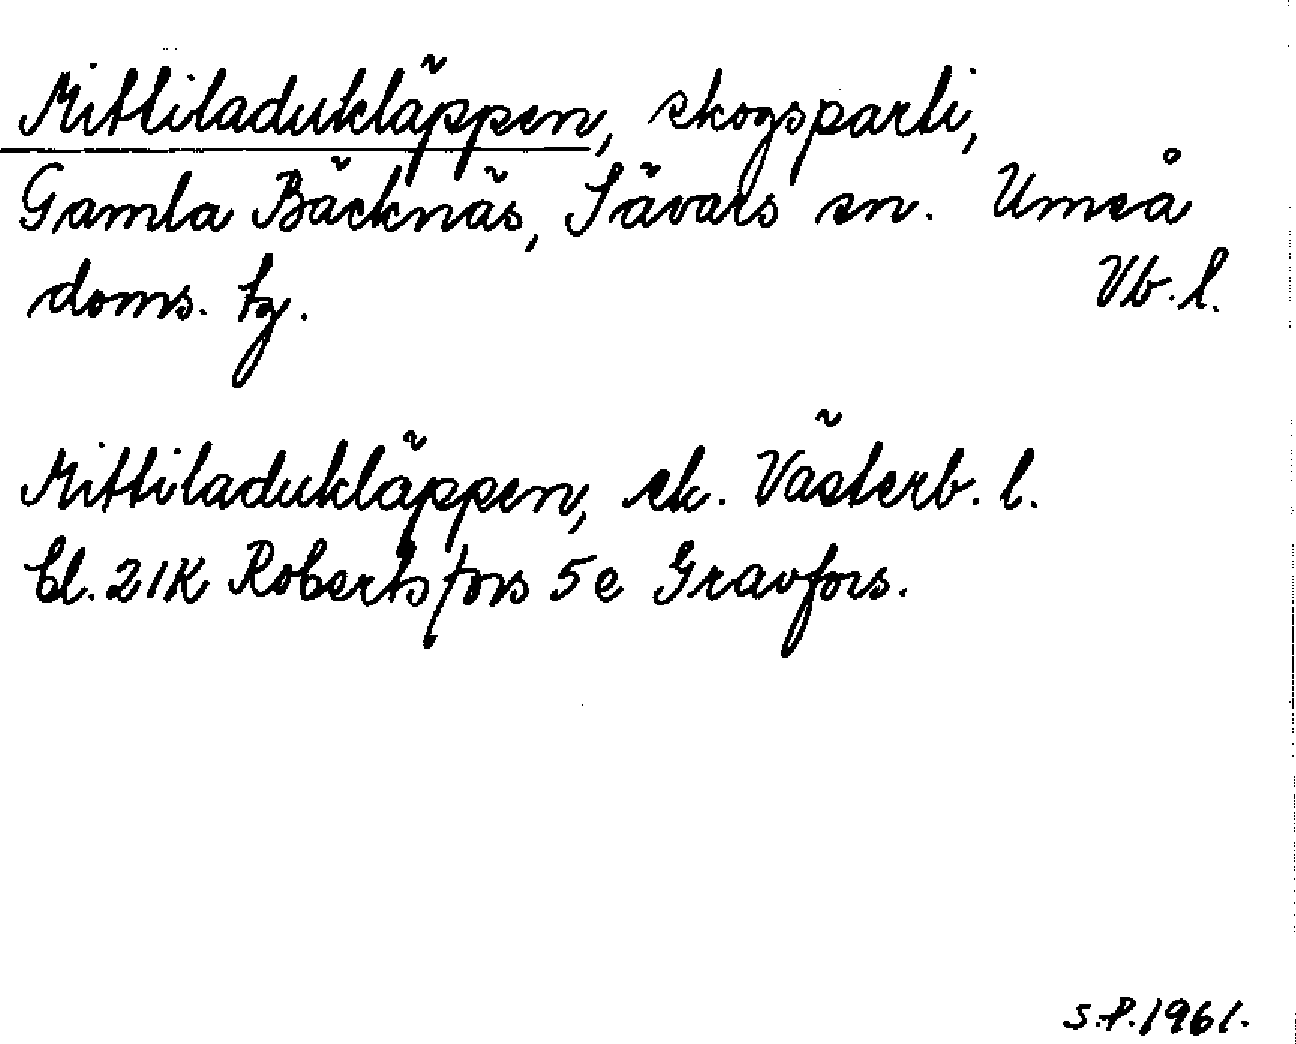 Mittiladukläppen, skogsparti,
Gamla Bäcknäs, Sävars sn. Umeå
doms. tg. Vb. l.
Mittiladukläppen, ek. Västerb. l.
bl. 21K Robertsfors 5e Gravfors.
S.P. 1961.